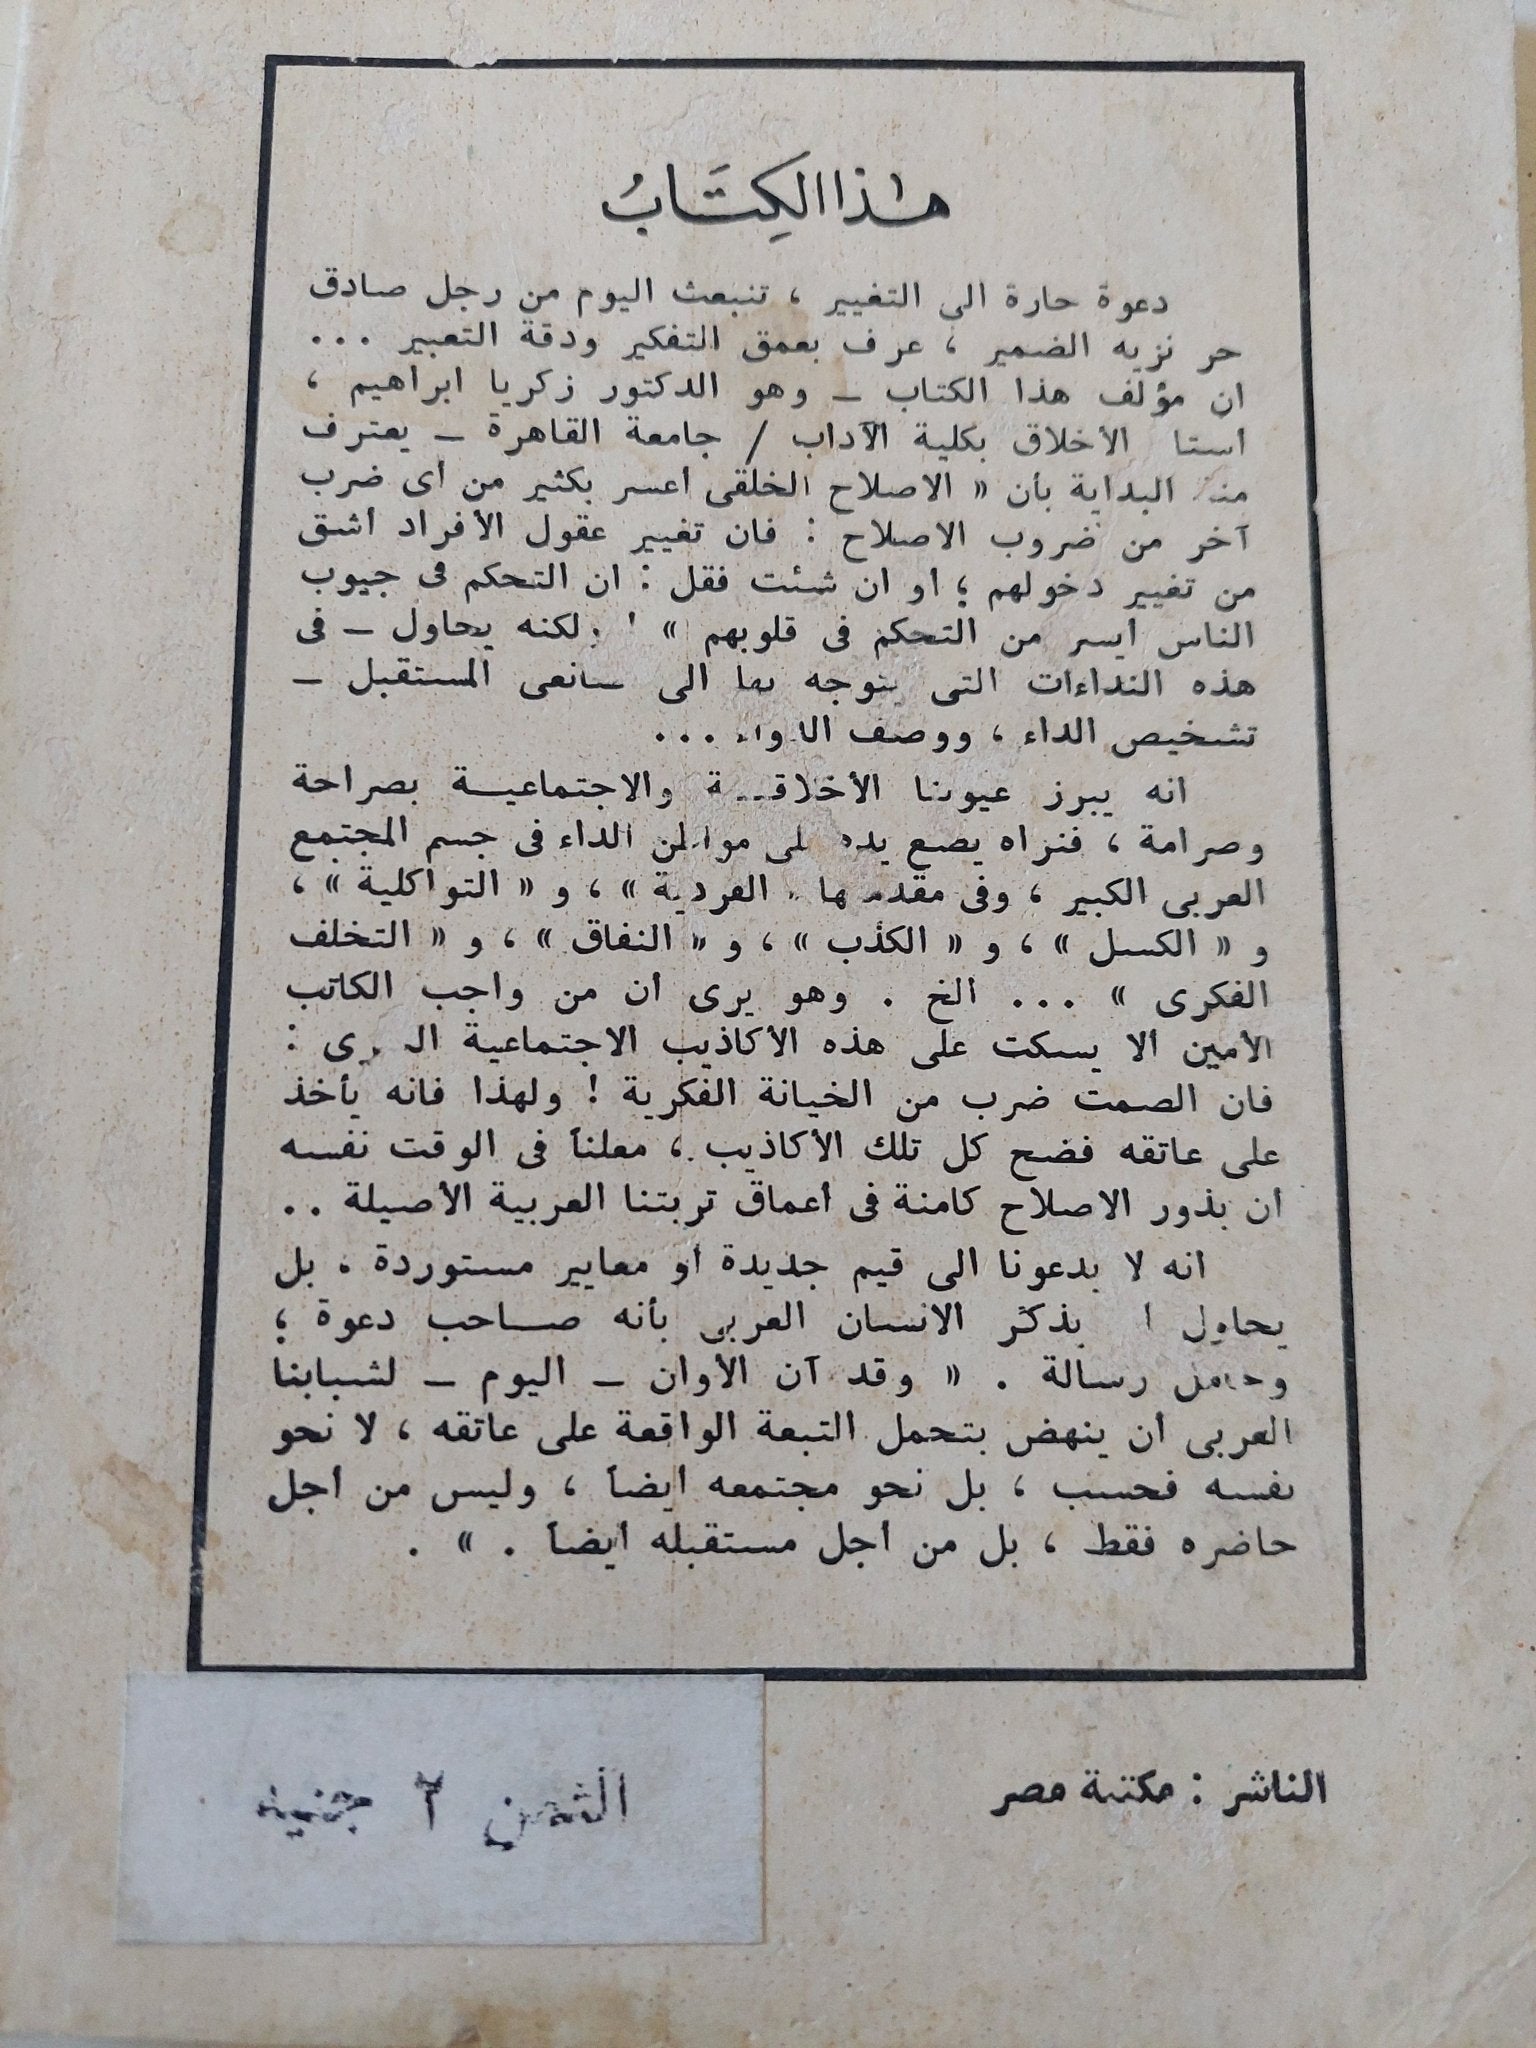 هذا الكِتَابُ
دعوة حارة الى التغيير ، تنبعث اليوم من رجل صادق
حر نزيه الضمير ، عرف بعمق التفكير ودقة التعبير ...
ان مؤلف هذا الكتاب ــ وهو الدكتور زكريا ابراهيم ،
الأخلاق بكلية الآداب / جامعة القاهرة ــ يعترف
البداية بأن « الاصلاح الخلقى أعسر بكثير من أى ضرب
آخر من ضروب الاصلاح : فان تغيير عقول الأفراد أشق
من تغيير دخولهم ؛ أو ان شئت فقل : ان التحكم فى جيوب
الناس أيسر من التحكم فى قلوبهم » ! ولكنه يحاول ــ فى
هذه النداءات التى يتوجه بها الى صانعى المستقبل ــ
تشخيص الداء ، ووصف الدواء ...
انه يبرز عيوبنا الأخلاقيــة والاجتماعيــة بصراحة
وصرامة ، فنراه يضع يده على مواطن الداء فى جسم المجتمع
العربى الكبير ، وفى مقدمتها « الفردية » ، و « التواكلية » ،
و « الكسل » ، و « الكذب » ، و « النفاق » ، و « التخلف
الفكرى » ... الخ . وهو يرى أن من واجب الكاتب
الأمين ألا يسكت على هذه الأكاذيب الاجتماعية :
فان الصمت ضرب من الخيانة الفكرية ! ولهذا فانه يأخذ
على عاتقه فضح كل تلك الأكاذيب ، معلناً فى الوقت نفسه
أن بذور الاصلاح كامنة فى أعماق تربتنا العربية الأصيلة ..
انه لا يدعونا الى قيم جديدة أو معايير مستوردة . بل
يحاول يذكر الانسان العربى بأنه صــاحب دعوة ؛
وحامل رسالة . « وقد آن الأوان ــ اليوم ــ لشبابنا
العربى أن ينهض بتحمل التبعة الواقعة على عاتقه ، لا نحو
نفسه فحسب ، بل نحو مجتمعه أيضاً ، وليس من أجل
حاضره فقط ، بل من أجل مستقبله أيضاً . » .
الناشر : مكتبة مصر
الثمن جنيه